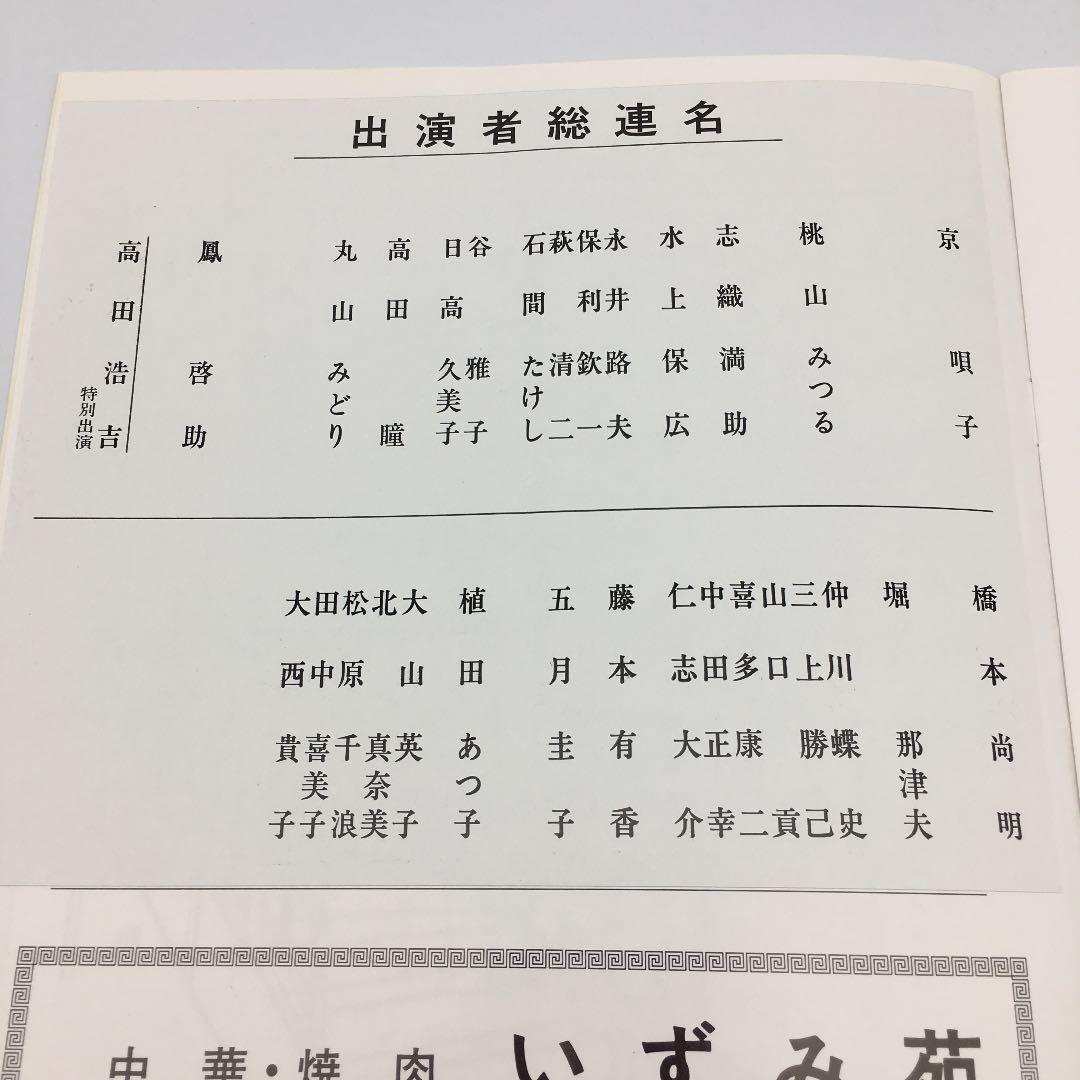 出演者総連名
京唄子
桃山みつる
志織満助
水上保広
永井路夫
保利欽一
萩清二
石間たけし
谷雅子
日高久美子
高田瞳
丸山みどり
鳳啓助
高田浩吉
特別出演
橋本尚明
堀那津夫
仲川蝶史
三上勝己
山口貢
喜多康二
中田正幸
仁志大介
藤本有香
五月圭子
植田あつ子
大山英子
北真奈美
松原千浪
田中喜美子
大西貴子
中華・焼肉 いずみ苑